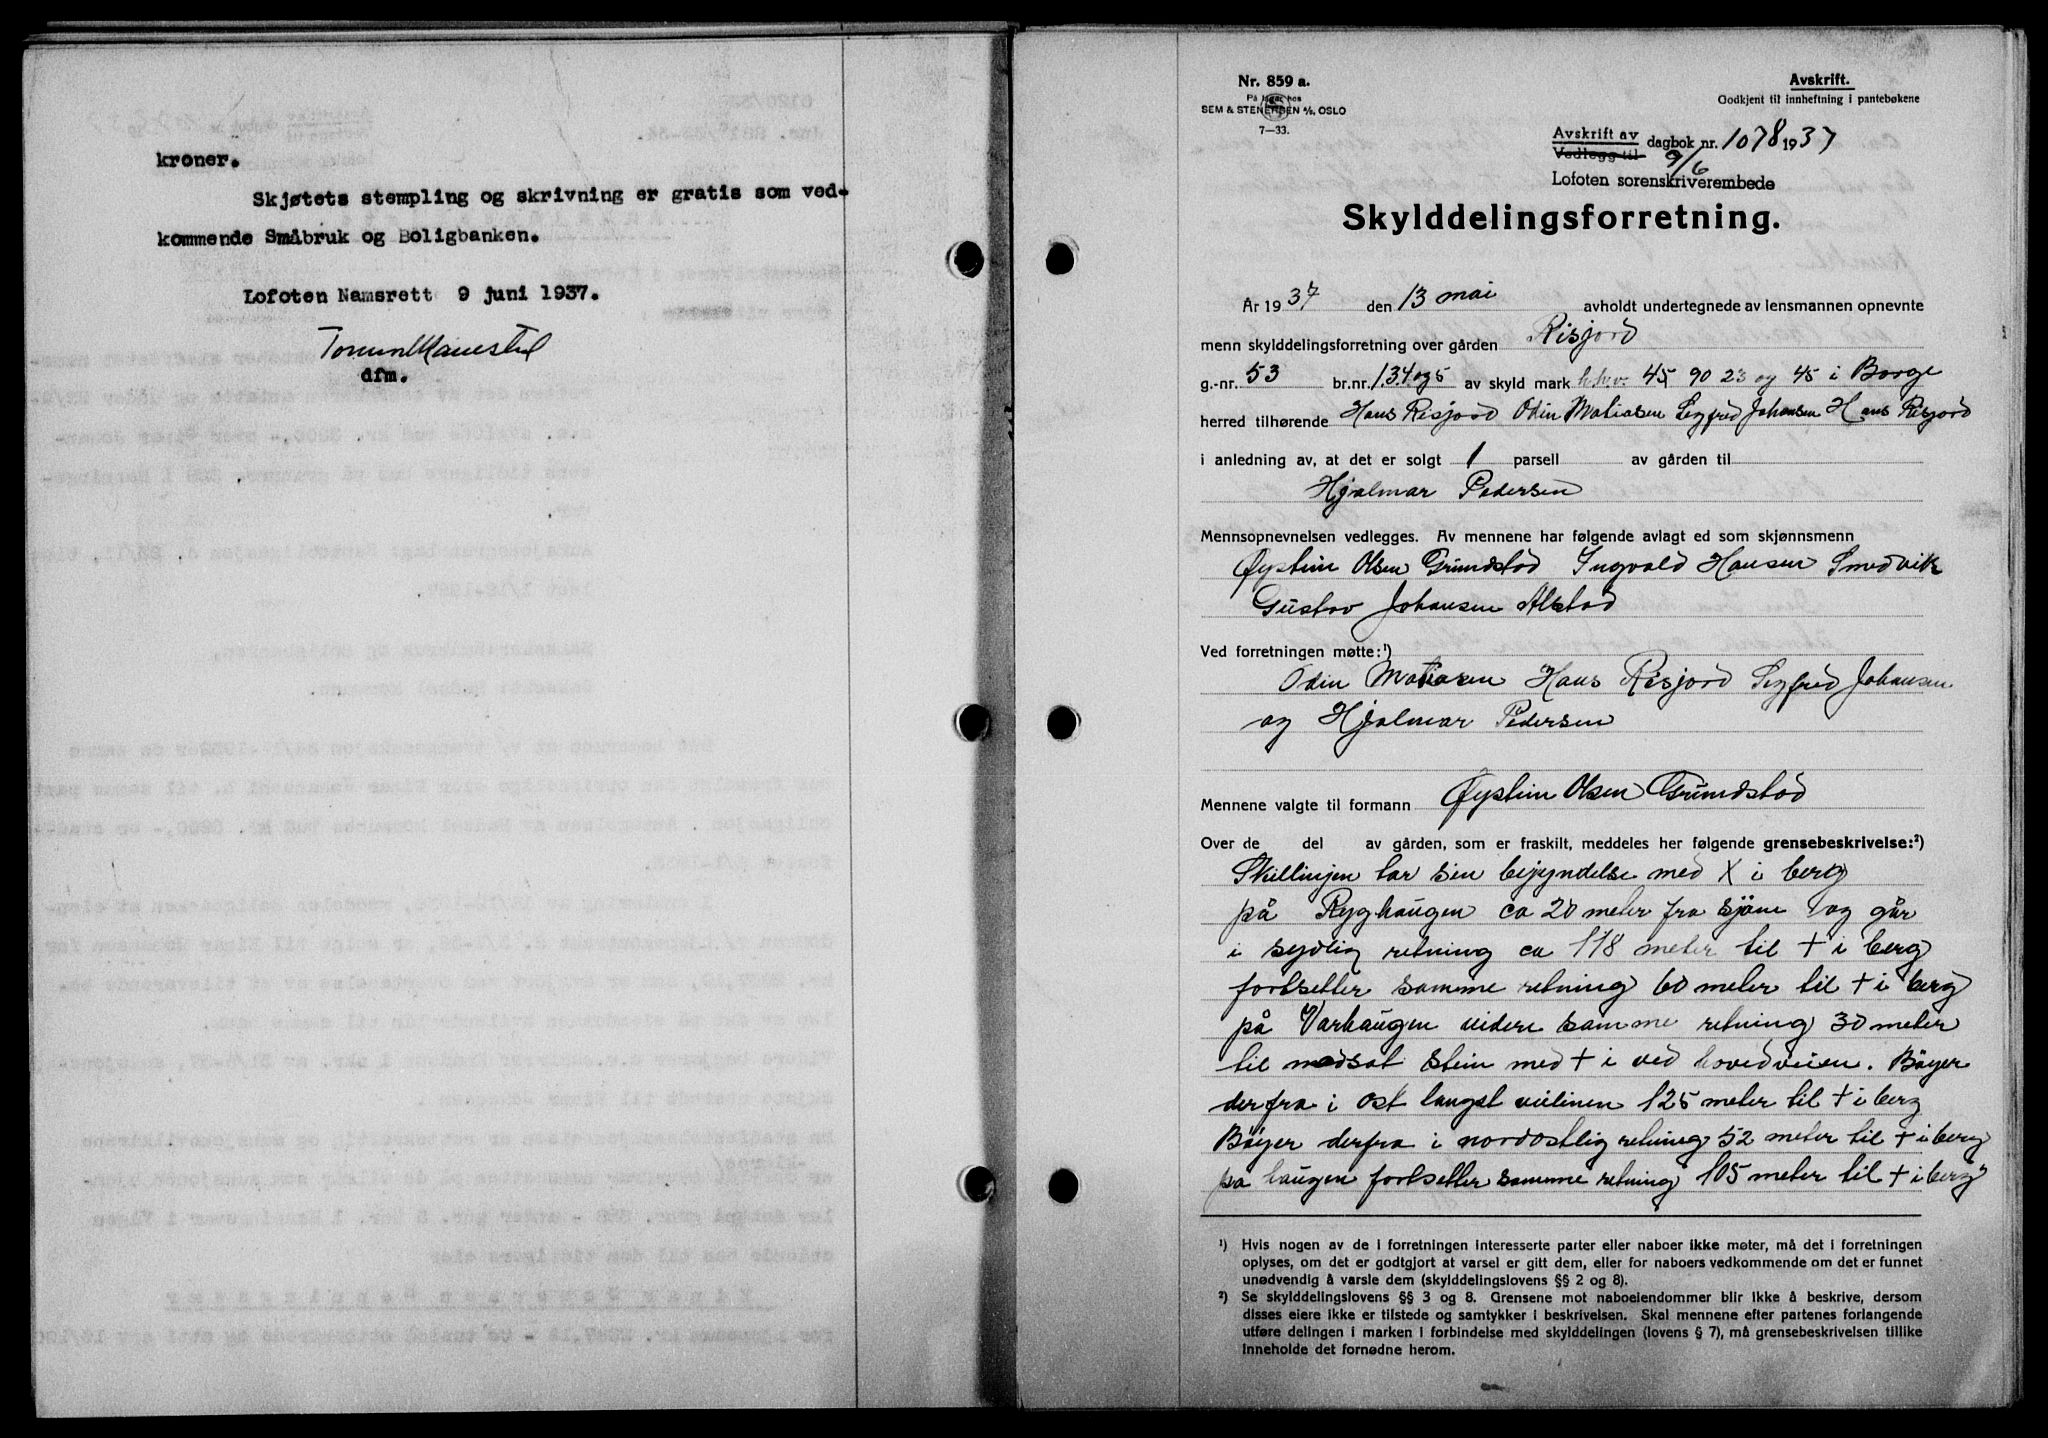 kroner.
Skjøtets stempling og skrivning er gratis som ved-
kommende Småbruk og Boligbanken.
Lofoten Namsrett 9 juni 1937.
dfm.
Nr. 859 a.
På lager hos
SEM & STENERSEN A/S, OSLO
7—33.
Avskrift.
Godkjent til innheftning i pantebøkene
Avskrift av
Vedlegg til
dagbok nr. 1078 1937
9/6
Lofoten sorenskriverembede
Skylddelingsforretning.
År 1937 den 13 mai avholdt undertegnede av lensmannen opnevnte
menn skylddelingsforretning over gården Risjord
g.-nr. 53 br.nr. 1 3 4 og 5 av skyld mark h.h.v. 45 90 23 og 45 i Borge
herred tilhørende Hans Risjord Odin Matiasen Sigfred Johansen Hans Risjord
i anledning av, at det er solgt 1 parsell av gården til
Hjalmar Pedersen
Mennsopnevnelsen vedlegges. Av mennene har følgende avlagt ed som skjønnsmenn
Øystein Olsen Grundstad Ingvald Hansen Smedvik
Gustav Johansen Alstad
Ved forretningen møtte:¹)
Odin Matiasen Hans Risjord Sigfred Johansen
og Hjalmar Pedersen
Mennene valgte til formann Øystein Olsen Grundstad
Over de del av gården, som er fraskilt, meddeles her følgende grensebeskrivelse:²)
Skillinjen tar sin begyndelse med X i berg
på Ryghaugen ca 20 meter fra sjøen og går
i sydlig retning ca 118 meter til + i berg
fortsetter samme retning 60 meter til + i berg
på Varhaugen videre samme retning 30 meter
til nedsat stein med + i ved hovedveien. Bøyer
derfra i ost langst veilinen 125 meter til + i berg
Bøyer derfra i nordostlig retning 52 meter til + i berg
pa haugen fortsetter samme retning 105 meter til + i berg
¹) Hvis nogen av de i forretningen interesserte parter eller naboer ikke møter, må det i forretningen
oplyses, om det er godtgjort at varsel er gitt dem, eller for naboers vedkommende om det er funnet
unødvendig å varsle dem (skylddelingslovens §§ 2 og 8).
²) Se skylddelingslovens §§ 3 og 8. Grensene mot naboeiendommer blir ikke å beskrive, dersom
disses eiere ikke er tilstede og samtykker i beskrivelsen. Skal mennene efter partenes forlangende
utføre delingen i marken i forbindelse med skylddelingen (lovens § 7), må grensebeskrivelsen tillike
inneholde det fornødne herom.